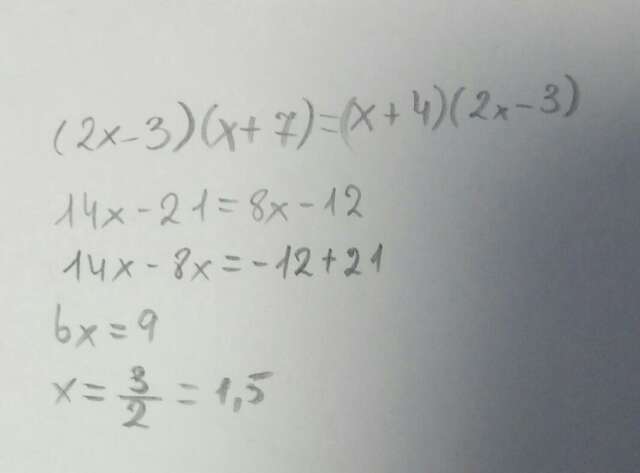 (2x-3)(x+7)=(x+4)(2x-3)
14x-21=8x-12
14x-8x=-12+21
6x=9
x=3/2=1,5